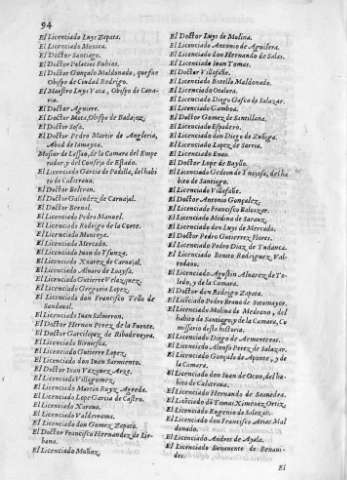 94
El Licenciado Luys Zapata.
El Licenciado Moxica.
El Doctor Santiago.
El Doctor Palacios Rubios.
El Doctor Gonçalo Maldonado, que fue
Obispo de Ciudad Rodrigo.
El Maestro Luys Vaca, Obispo de Cana-
ria.
El Doctor Aguirre.
El Doctor Mota, Obispo de Badajoz,
El Doctor Sosa.
El Doctor Pedro Martir de Angleria,
Abad de Iamayca.
Mosiur de Lassao, de la Camara del Empe
rador, y del Consejo de Estado.
El Licenciado Garcia de Padilla, del habi
to de Calatraua.
El Doctor Beltran.
El Doctor Galindez de Carvajal.
El Doctor Bernal.
El Licenciado Pedro Manuel.
El Licenciado Rodrigo de la Corte.
El Licenciado Montoya.
El Licenciado Mercado.
El Licenciado Iuan de Ysunza.
El Licenciado Xuarez de Carvajal.
El Licenciado Alvaro de Loaysa.
El Licenciado Gutierre Velazquez.
El Licenciado Gregorio Lopez.
El Licenciado don Francisco Tello de
Sandoual.
El Licenciado Iuan Salmeron.
El Doctor Hernan Perez de la Fuente.
El Doctor Garcilopez de Ribadeneyra.
El Licenciado Biruiesca.
El Licenciado Gutierre Lopez.
El Licenciado don Iuan Sarmiento.
El Doctor Iuan Vazquez Arze.
El Licenciado Villagomez.
El Licenciado Martin Ruyz Agreda.
El Licenciado Lope Garcia de Castro.
El Licenciado Xarava.
El Licenciado Valderrama.
El Licenciado don Gomez Zapata.
El Doctor Francisco Hernandez de Lie-
bana.
El Licenciado Muñoz.
El Doctor Luys de Molina.
El Licenciado Antonio de Aguilera.
El Licenciado don Hernando de Salas.
El Licenciado Iuan Tomas.
El Doctor Villafañe.
El Licenciado Botello Maldonado.
El Licenciado Otalora.
El Licenciado Diego Gasca de Salazar.
El Licenciado Gamboa.
El Doctor Gomez de Santillana.
El Licenciado Espadero.
El Licenciado don Diego de Zuñiga.
El Licenciado Lopez de Sarria.
El Licenciado Enao.
El Doctor Lope de Bayllo.
El Licenciado Gedeon de Ynojosa, del ha
bito de Santiago.
El Licenciado Villafañe.
El Doctor Antonio Gonçalez.
El Licenciado Francisco Balcaçar.
El Licenciado Medina de Sarauz.
El Licenciado don Luys de Mercado.
El Doctor Pedro Gutierrez Flores.
El Licenciado Pedro Diaz de Tudanca.
El Licenciado Benito Rodriguez Val-
todano.
El Licenciado Agustin Alvarez de To-
ledo, y de la Camara.
El Doctor don Rodrigo Zapata.
El Licenciado Pedro Bravo de Sotomayor.
El Licenciado Molina de Medrano, del
habito de Santiago, y de la Camara, Co
missario desta historia.
El Licenciado Diego de Armenteros.
El Licenciado Alonso Perez de Salazar.
El Licenciado Gonçalo de Aponte, y de
la Camara.
El Licenciado don Iuan de Ocon, del ha-
bito de Calatraua.
El Licenciado Hernando de Saavedra.
El Licenciado do Tomas Ximenez Ortiz,
El Licenciado Eugenio de Salazar.
El Licenciado don Francisco Arias Mal
donado.
El Licenciado Andres de Ayala.
El Licenciado Benavente de Benaui-
des.
El